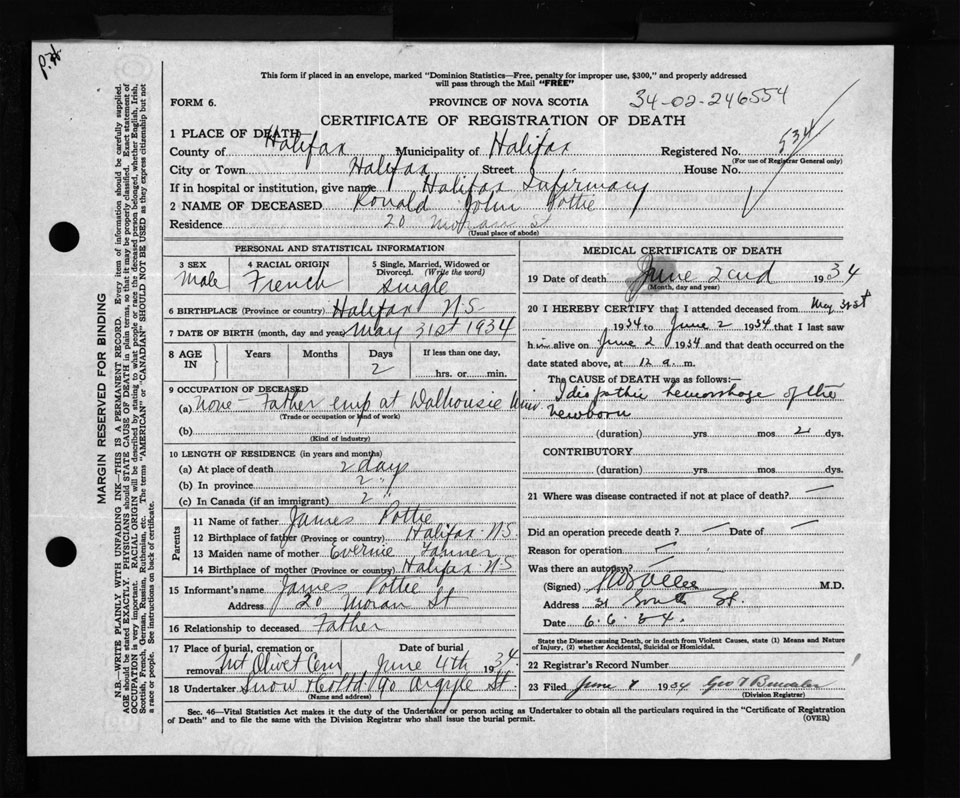 This form if placed in an envelope, marked "Dominion Statistics—Free, penalty for improper use, $300," and properly addressed
will pass through the Mail "FREE"
FORM 6.
PROVINCE OF NOVA SCOTIA
34-02-246554
CERTIFICATE OF REGISTRATION OF DEATH
1 PLACE OF DEATH—
County of Halifax Municipality of Halifax Registered No. 534
(For use of Registrar General only)
City or Town Halifax Street House No.
If in hospital or institution, give name Halifax Infirmary
2 NAME OF DECEASED Ronald John Pottie
Residence 20 Moran St
(Usual place of abode)
PERSONAL AND STATISTICAL INFORMATION
3 SEX Male
4 RACIAL ORIGIN French
5 Single, Married, Widowed or Divorced. (Write the word) single
6 BIRTHPLACE (Province or country) Halifax N.S
7 DATE OF BIRTH (month, day and year) May 31st 1934
8 AGE IN Years Months Days 2 If less than one day, hrs. or min.
9 OCCUPATION OF DECEASED
(a) None – Father emp at Dalhousie Univ.
(Trade or occupation or kind of work)
(b)
(Kind of industry)
10 LENGTH OF RESIDENCE (in years and months)
(a) At place of death 2 days
(b) In province 2 "
(c) In Canada (if an immigrant) 2 "
Parents
11 Name of father James Pottie
12 Birthplace of father (Province or country) Halifax N.S.
13 Maiden name of mother
14 Birthplace of mother (Province or country) Halifax N S
15 Informant's name James Pottie
Address 20 Moran St
16 Relationship to deceased Father
17 Place of burial, cremation or removal Mt Olivet Cem Date of burial June 4th 1934
18 Undertaker Snow & Co Ltd 90 Argyle St.
(Name and address)
MEDICAL CERTIFICATE OF DEATH
19 Date of death June 2nd 1934
(Month, day and year)
20 I HEREBY CERTIFY that I attended deceased from May 31st
1934 to June 2 1934 that I last saw
him alive on June 2 1934 and that death occurred on the
date stated above, at 12 a. m.
The CAUSE of DEATH was as follows:—
Idiopathic hemorrhage of the
newborn
(duration) yrs mos 2 dys.
CONTRIBUTORY
(duration) yrs mos dys.
21 Where was disease contracted if not at place of death? —
Did an operation precede death? — Date of —
Reason for operation —
Was there an autopsy? —
(Signed) M.D.
Address 31 South St.
Date 6.6.34.
State the Disease causing Death, or in death from Violent Causes, state (1) Means and Nature
of Injury, (2) whether Accidental, Suicidal or Homicidal.
22 Registrar's Record Number
23 Filed June 1934 Geo
(Division Registrar)
Sec. 46—Vital Statistics Act makes it the duty of the Undertaker or person acting as Undertaker to obtain all the particulars required in the "Certificate of Registration
of Death" and to file the same with the Division Registrar who shall issue the burial permit.
(OVER)
MARGIN RESERVED FOR BINDING
N.B.—WRITE PLAINLY WITH UNFADING INK—THIS IS A PERMANENT RECORD. Every item of information should be carefully supplied.
AGE should be stated EXACTLY. PHYSICIANS should STATE CAUSE OF DEATH in plain terms, so that it may be properly classified. Exact statement of
OCCUPATION is very important. RACIAL ORIGIN will be described by stating to what people or race the deceased person belonged, whether English, Irish,
Scottish, French, German, Russian, Ruthenian, etc. The terms "AMERICAN" or "CANADIAN" SHOULD NOT BE USED as they express citizenship but not
a race or people. See instructions on back of certificate.